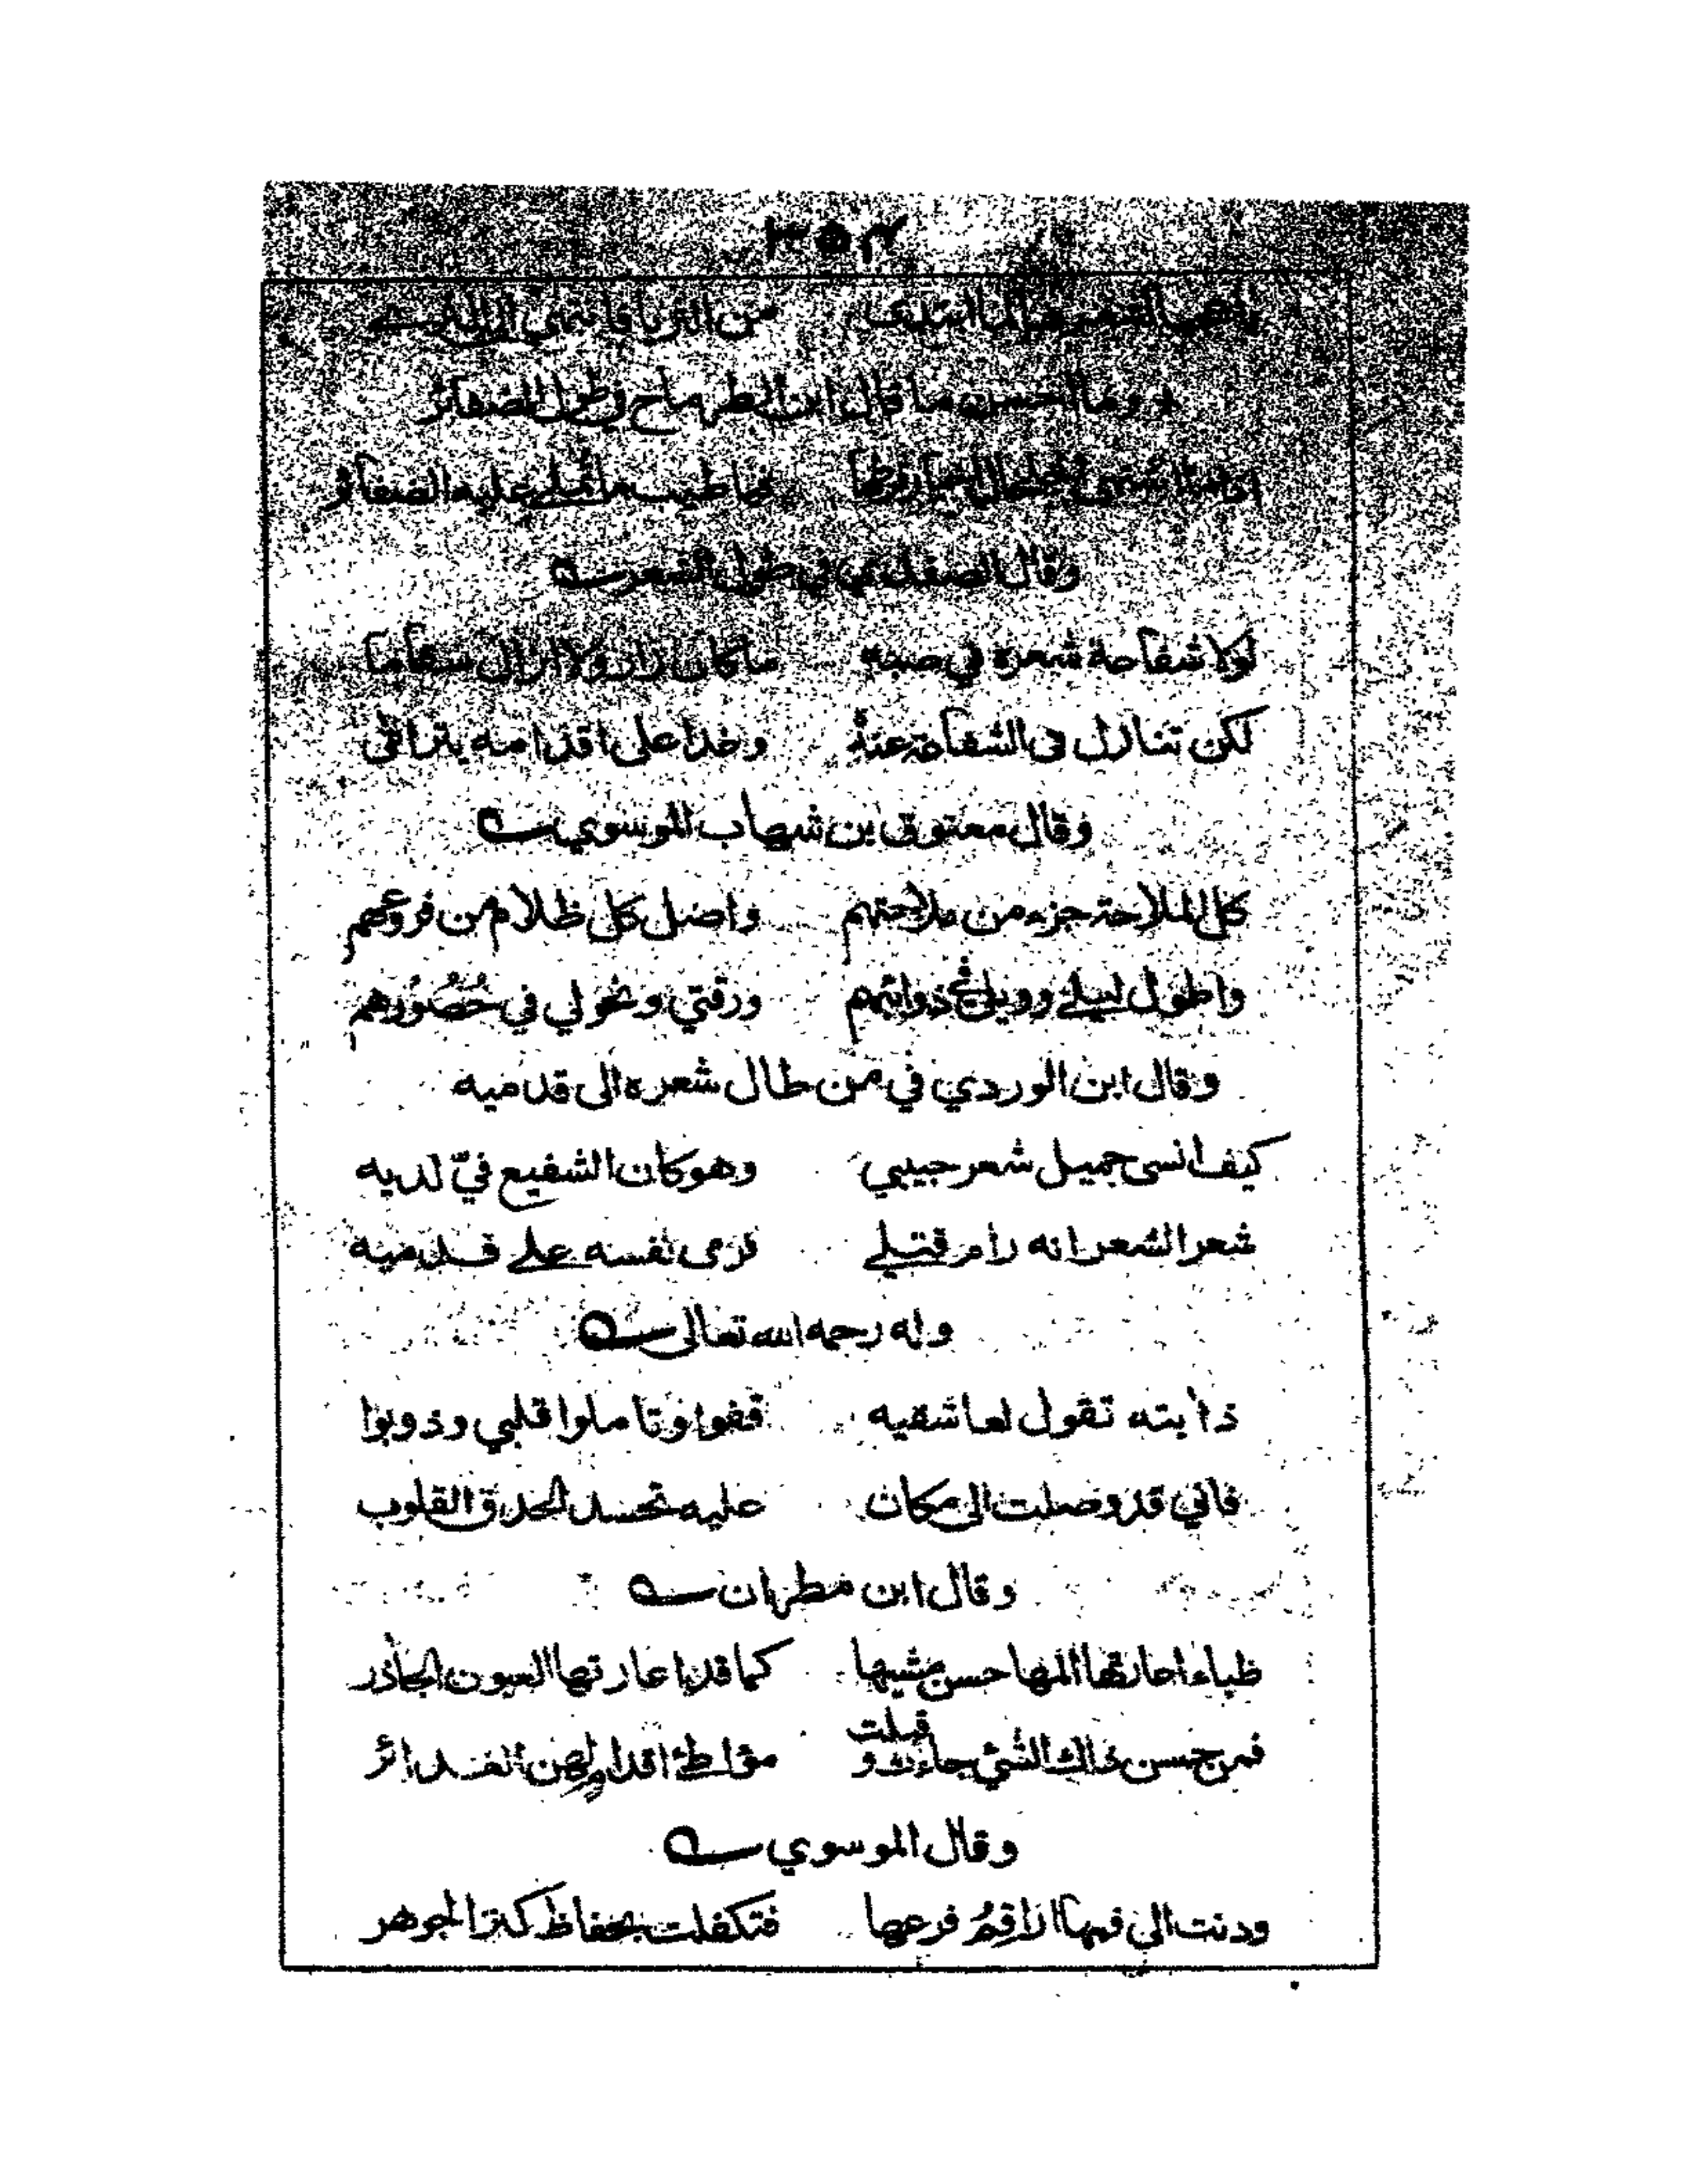 ٣٥٢
من الثريا فانتهى الى الثرى
وما احسن ما قال ابن الطرماح في طول الضفائر
فما طيب ما تملي عليه الضفائر
وقال الصفدي في طول الشعر
لولا شفاعة شعره في صبه ما كان زار ولا ازال سقاما
لكن تنازل في الشفاعة عنه وغدا على اقدامه يترامى
وقال معتوق بن شهاب الموسوي
كل الملاحة جزء من ملاحتهم واصل كل ظلام من فروعهم
واطول ليلي وويلي في ذوائبهم ورقتي ونحولي في خُصُورهم
وقال ابن الوردي في من طال شعره الى قدميه
كيف انسى جميل شعر حبيبي وهو كان الشفيع فيّ لديه
شعر الشعر انه رام قتلي فرمى نفسه على قدميه
وله رحمه الله تعالى
ذؤابته تقول لعاشقيه قفوا وتاملوا قلبي وذوبوا
فاني قد وصلت الى مكان عليه تحسد الحدق القلوب
وقال ابن مطران
ظباء اعارتها المها حسن مشيها كما قد اعارتها العيون الجاذر
فمن حسن ذاك المشي جاءت وقبلت مواطئ اقدام لهن الغدائر
وقال الموسوي
ودنت الى فمها اراقمُ فرعها فتكفلت بحفاظ كنز الجوهر